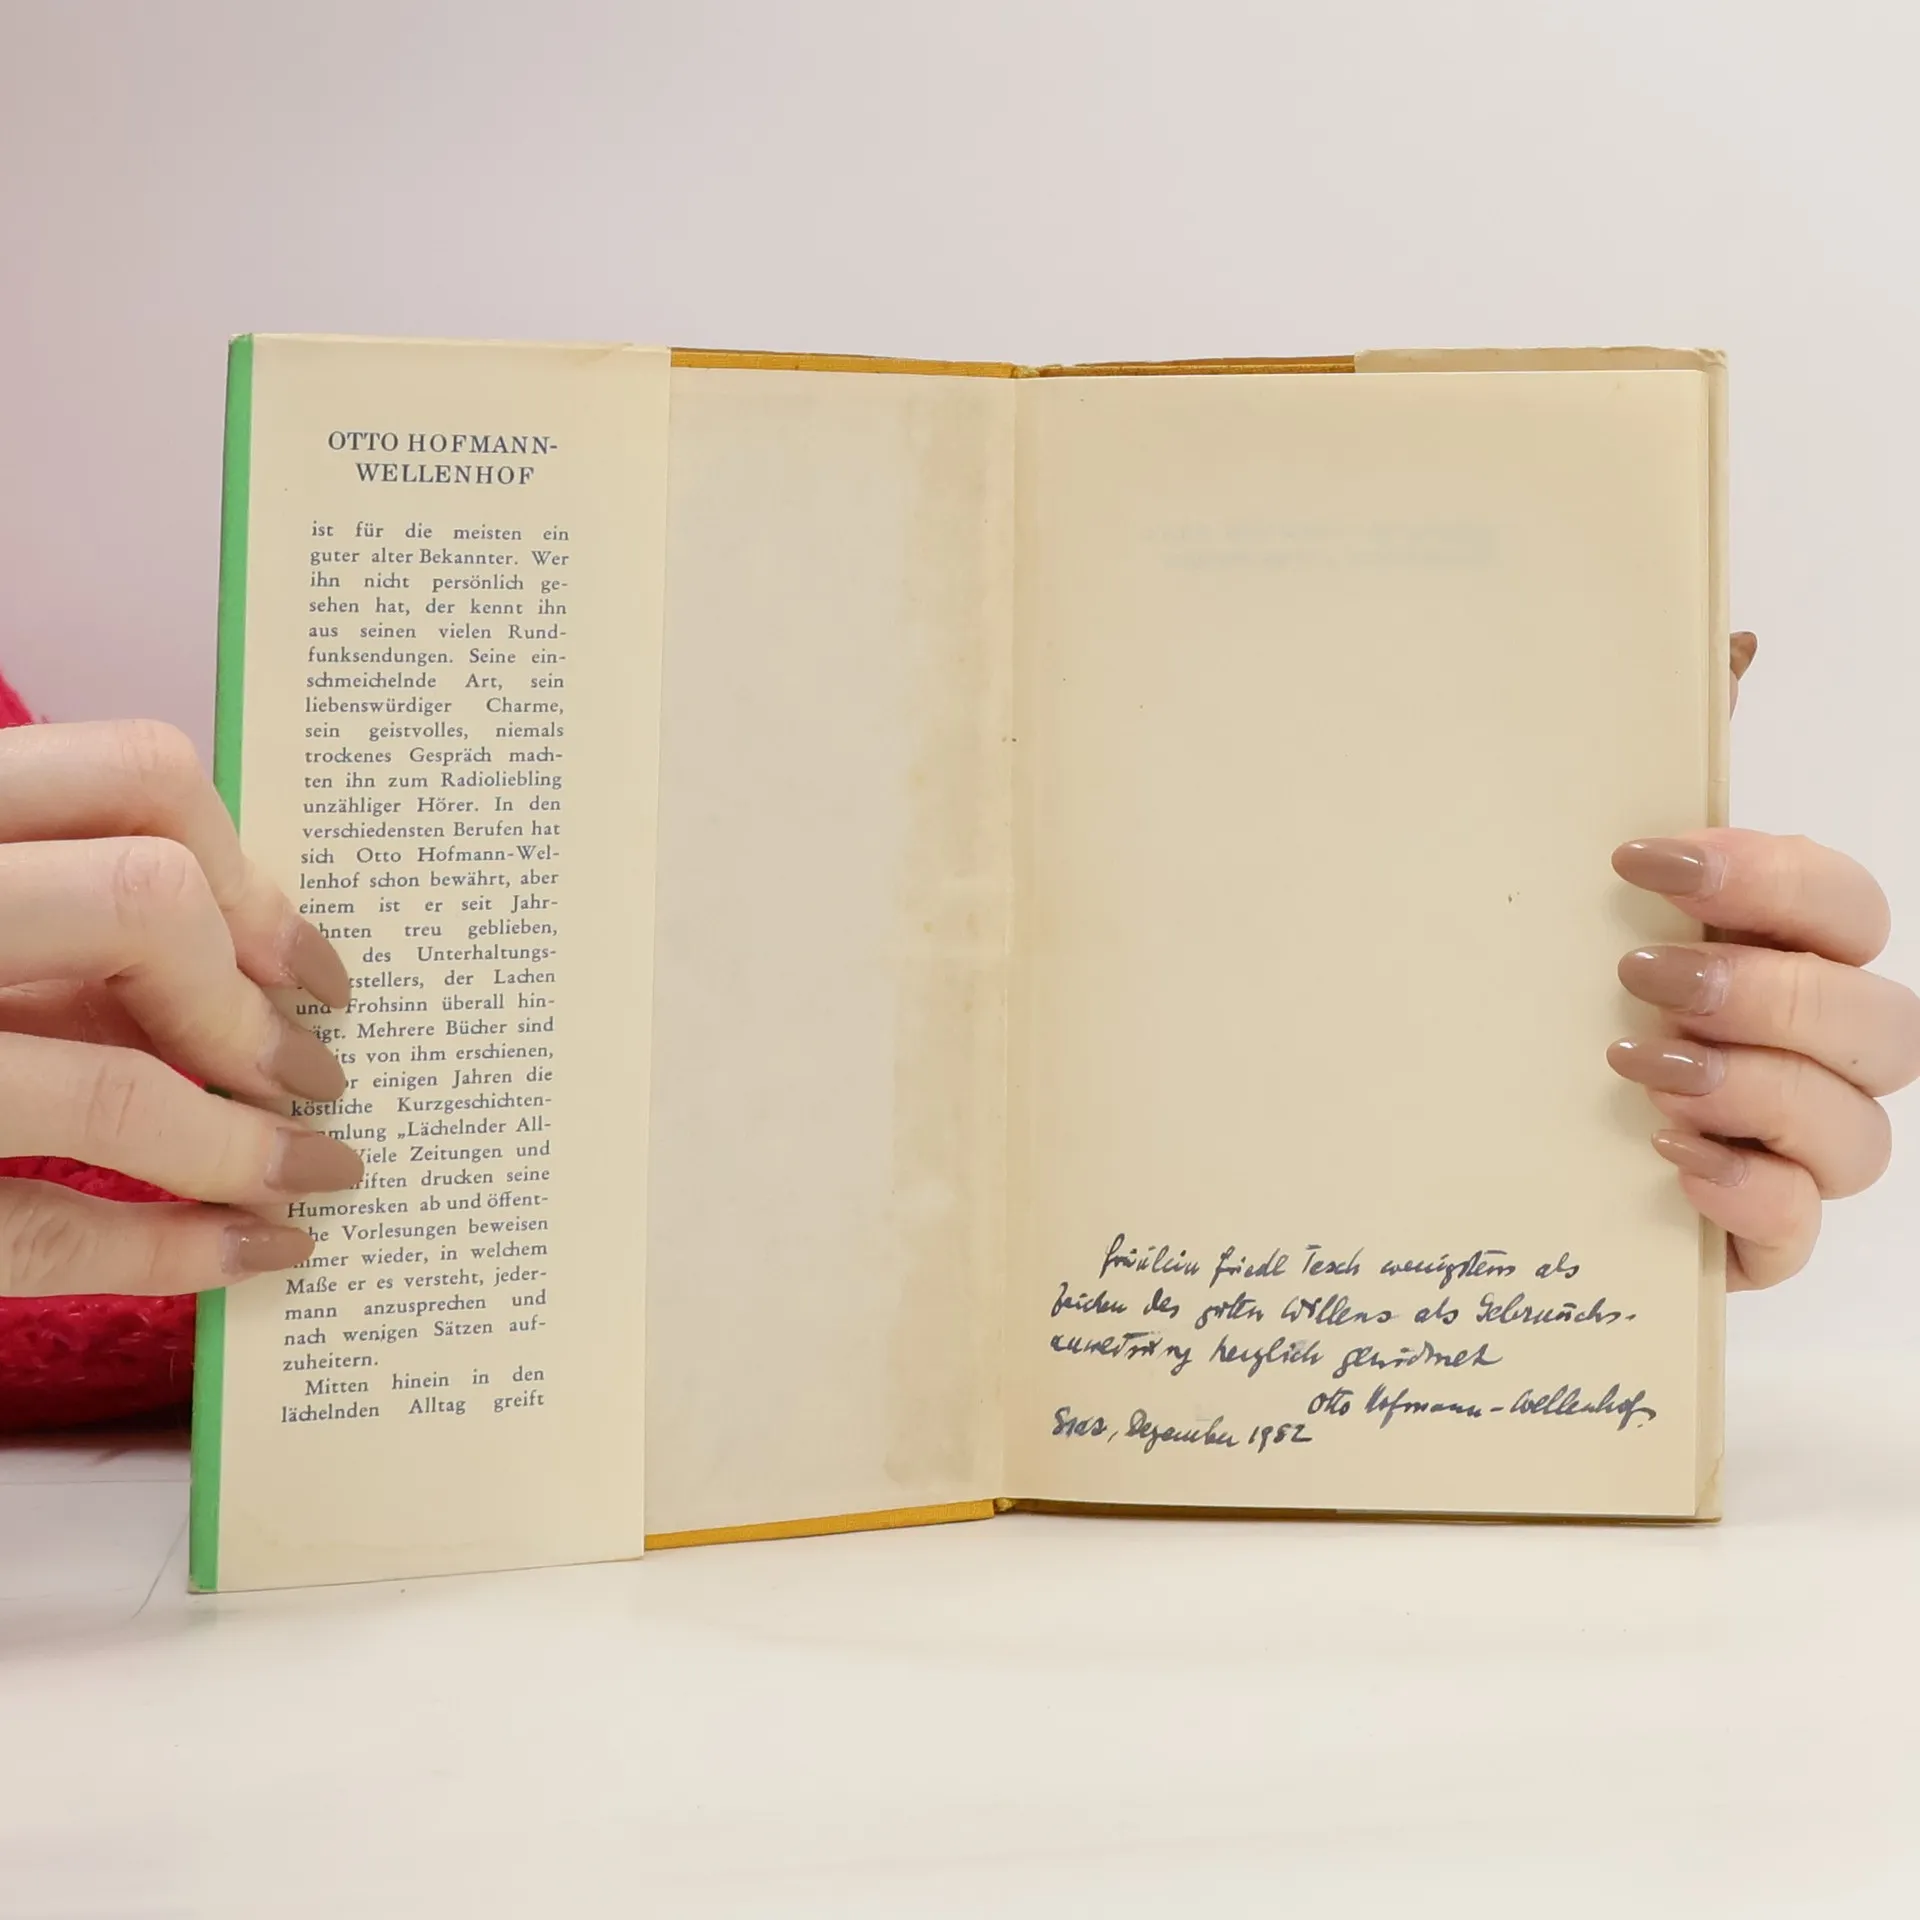 OTTO HOFMANN-
WELLENHOF
ist für die meisten ein
guter alter Bekannter. Wer
ihn nicht persönlich ge-
sehen hat, der kennt ihn
aus seinen vielen Rund-
funksendungen. Seine ein-
schmeichelnde Art, sein
liebenswürdiger Charme,
sein geistvolles, niemals
trockenes Gespräch mach-
ten ihn zum Radioliebling
unzähliger Hörer. In den
verschiedensten Berufen hat
sich Otto Hofmann-Wel-
lenhof schon bewährt, aber
einem ist er seit Jahr-
hnten treu geblieben,
des Unterhaltungs-
tstellers, der Lachen
und Frohsinn überall hin-
ägt. Mehrere Bücher sind
its von ihm erschienen,
or einigen Jahren die
köstliche Kurzgeschichten-
mmlung „Lächelnder All-
Viele Zeitungen und
riften drucken seine
Humoresken ab und öffent-
he Vorlesungen beweisen
mmer wieder, in welchem
Maße er es versteht, jeder-
mann anzusprechen und
nach wenigen Sätzen auf-
zuheitern.
Mitten hinein in den
lächelnden Alltag greift
Fräulein Friedl Tesch wenigstens als
Zeichen des guten Willens als Gebrauchs-
anweisung herzlich gewidmet
Otto Hofmann-Wellenhof.
Graz, Dezember 1952